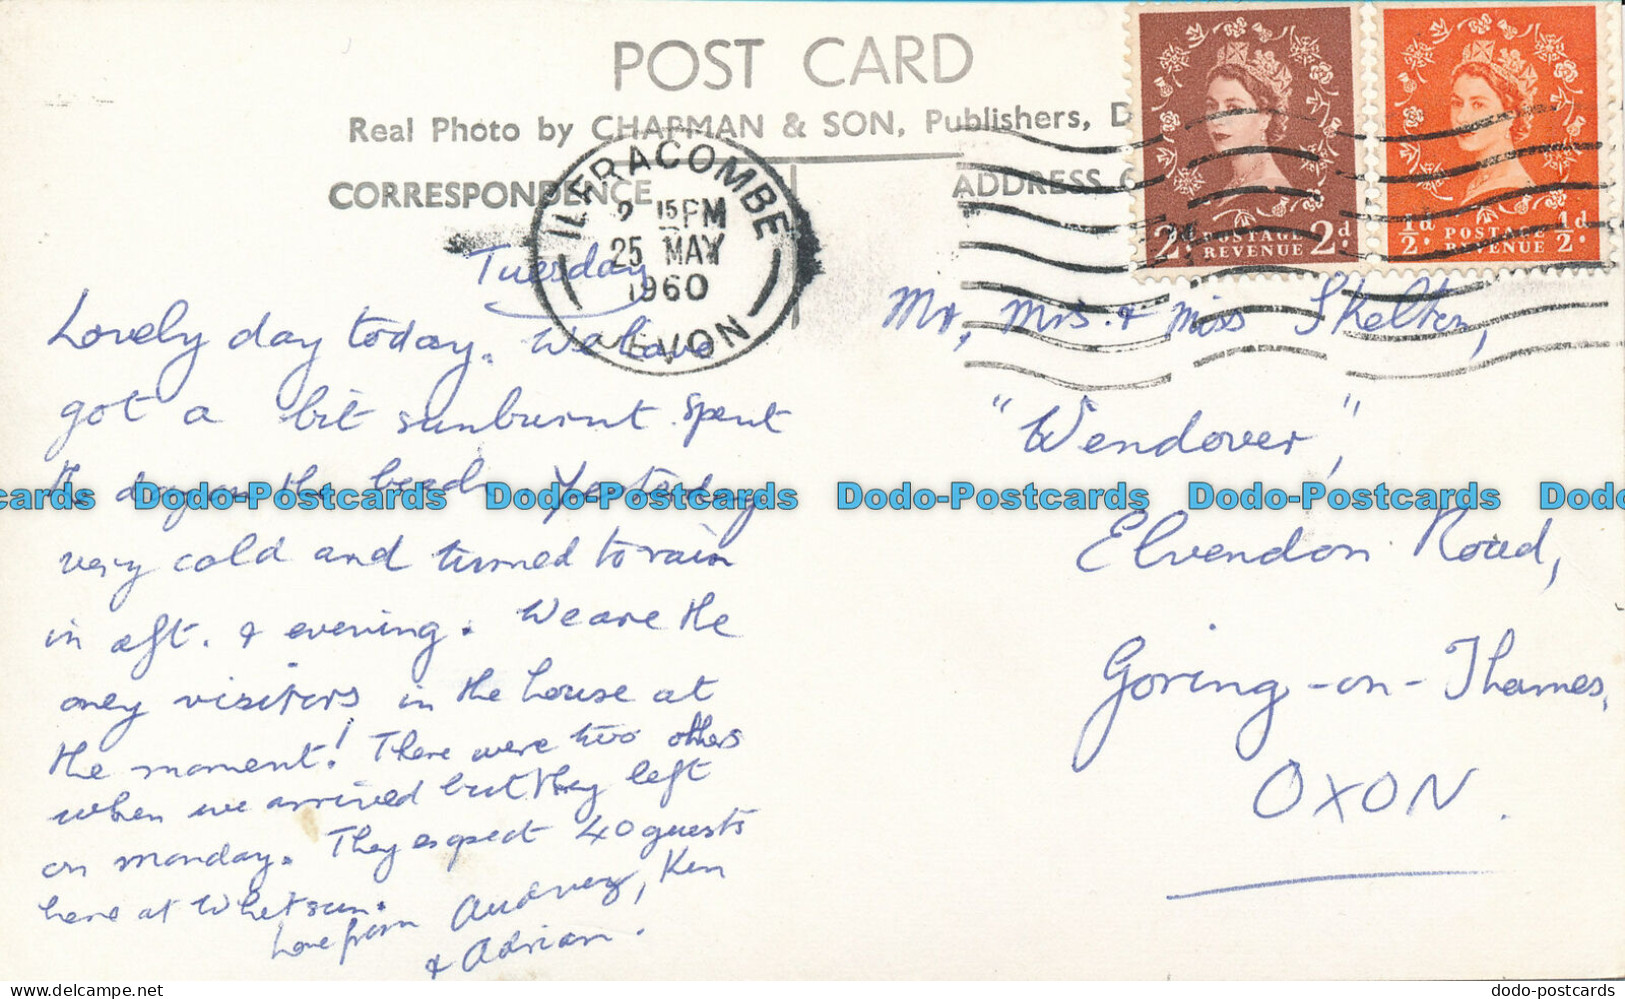 POST CARD
Real Photo by CHAPMAN & SON, Publishers, D
CORRESPONDENCE
ADDRESS
ILFRACOMBE
2 15 PM
25 MAY
1960
DEVON
2d. POSTAGE REVENUE 2d.
½d. POSTAGE REVENUE ½d.
Tuesday
Lovely day today. We have
got a bit sunburnt. Spent
the day on the beach. Yesterday
very cold and turned to rain
in aft. & evening. We are the
only visitors in the house at
the moment! There were two others
when we arrived but they left
on Monday. They expect 40 guests
here at Whitsun.
Love from Audrey, Ken
& Adrian.
Mr, Mrs. & Miss Skelton,
"Wendover",
Elvendon Road,
Goring-on-Thames,
OXON.
Dodo-Postcards Dodo-Postcards Dodo-Postcards Dodo-Postcards
dodo-postcards